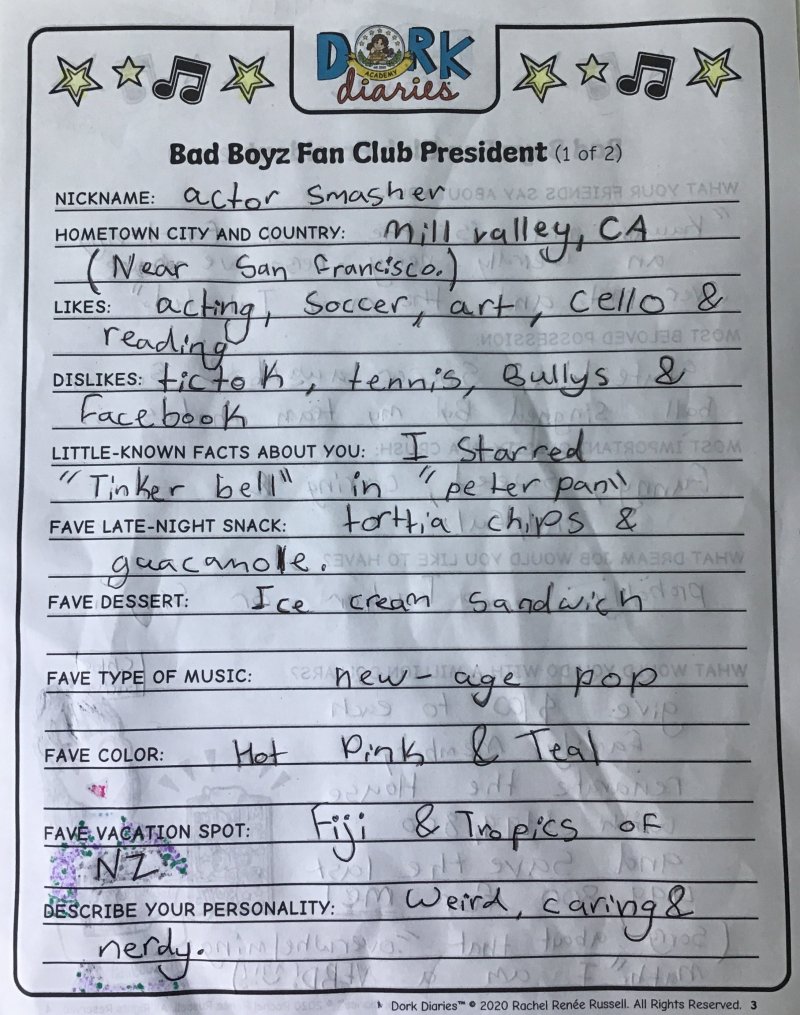 DORK
ACADEMY
diaries
Bad Boyz Fan Club President (1 of 2)
NICKNAME: actor smasher
HOMETOWN CITY AND COUNTRY: Mill valley, CA
(Near San francisco.)
LIKES: acting, Soccer, art, cello &
reading
DISLIKES: tictok, tennis, Bullys &
Facebook
LITTLE-KNOWN FACTS ABOUT YOU: I starred
"Tinker bell" in "peter pan"
FAVE LATE-NIGHT SNACK: torttia chips &
guacanole.
FAVE DESSERT: Ice cream sandwich
FAVE TYPE OF MUSIC: new-age pop
FAVE COLOR: Hot Pink & Teal
FAVE VACATION SPOT: Fiji & Tropics of
NZ
DESCRIBE YOUR PERSONALITY: Weird, caring &
nerdy.
Dork Diaries™ © 2020 Rachel Renée Russell. All Rights Reserved. 3